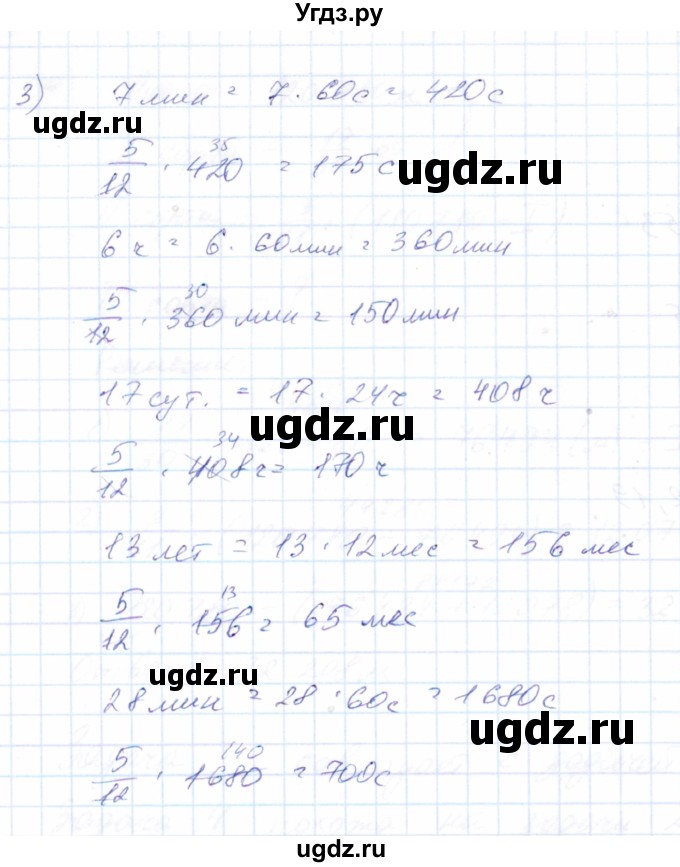 Угдз.ру
3) 7 мин = 7 · 60с = 420с
ugdz.ru
35
5/12 · 420 = 175с
ugdz.ru
6 ч = 6 · 60мин = 360мин
30
5/12 · 360 мин = 150мин
17 сут. = 17 · 24ч = 408ч
ugdz.ru
34
5/12 · 408ч = 170ч
13 лет = 13 · 12мес = 156 мес
13
5/12 · 156 = 65 мес
ugdz.ru
28мин = 28 · 60с = 1680с
ugdz.ru
140
5/12 · 1680 = 700с
ugdz.ru
ugdz.ru